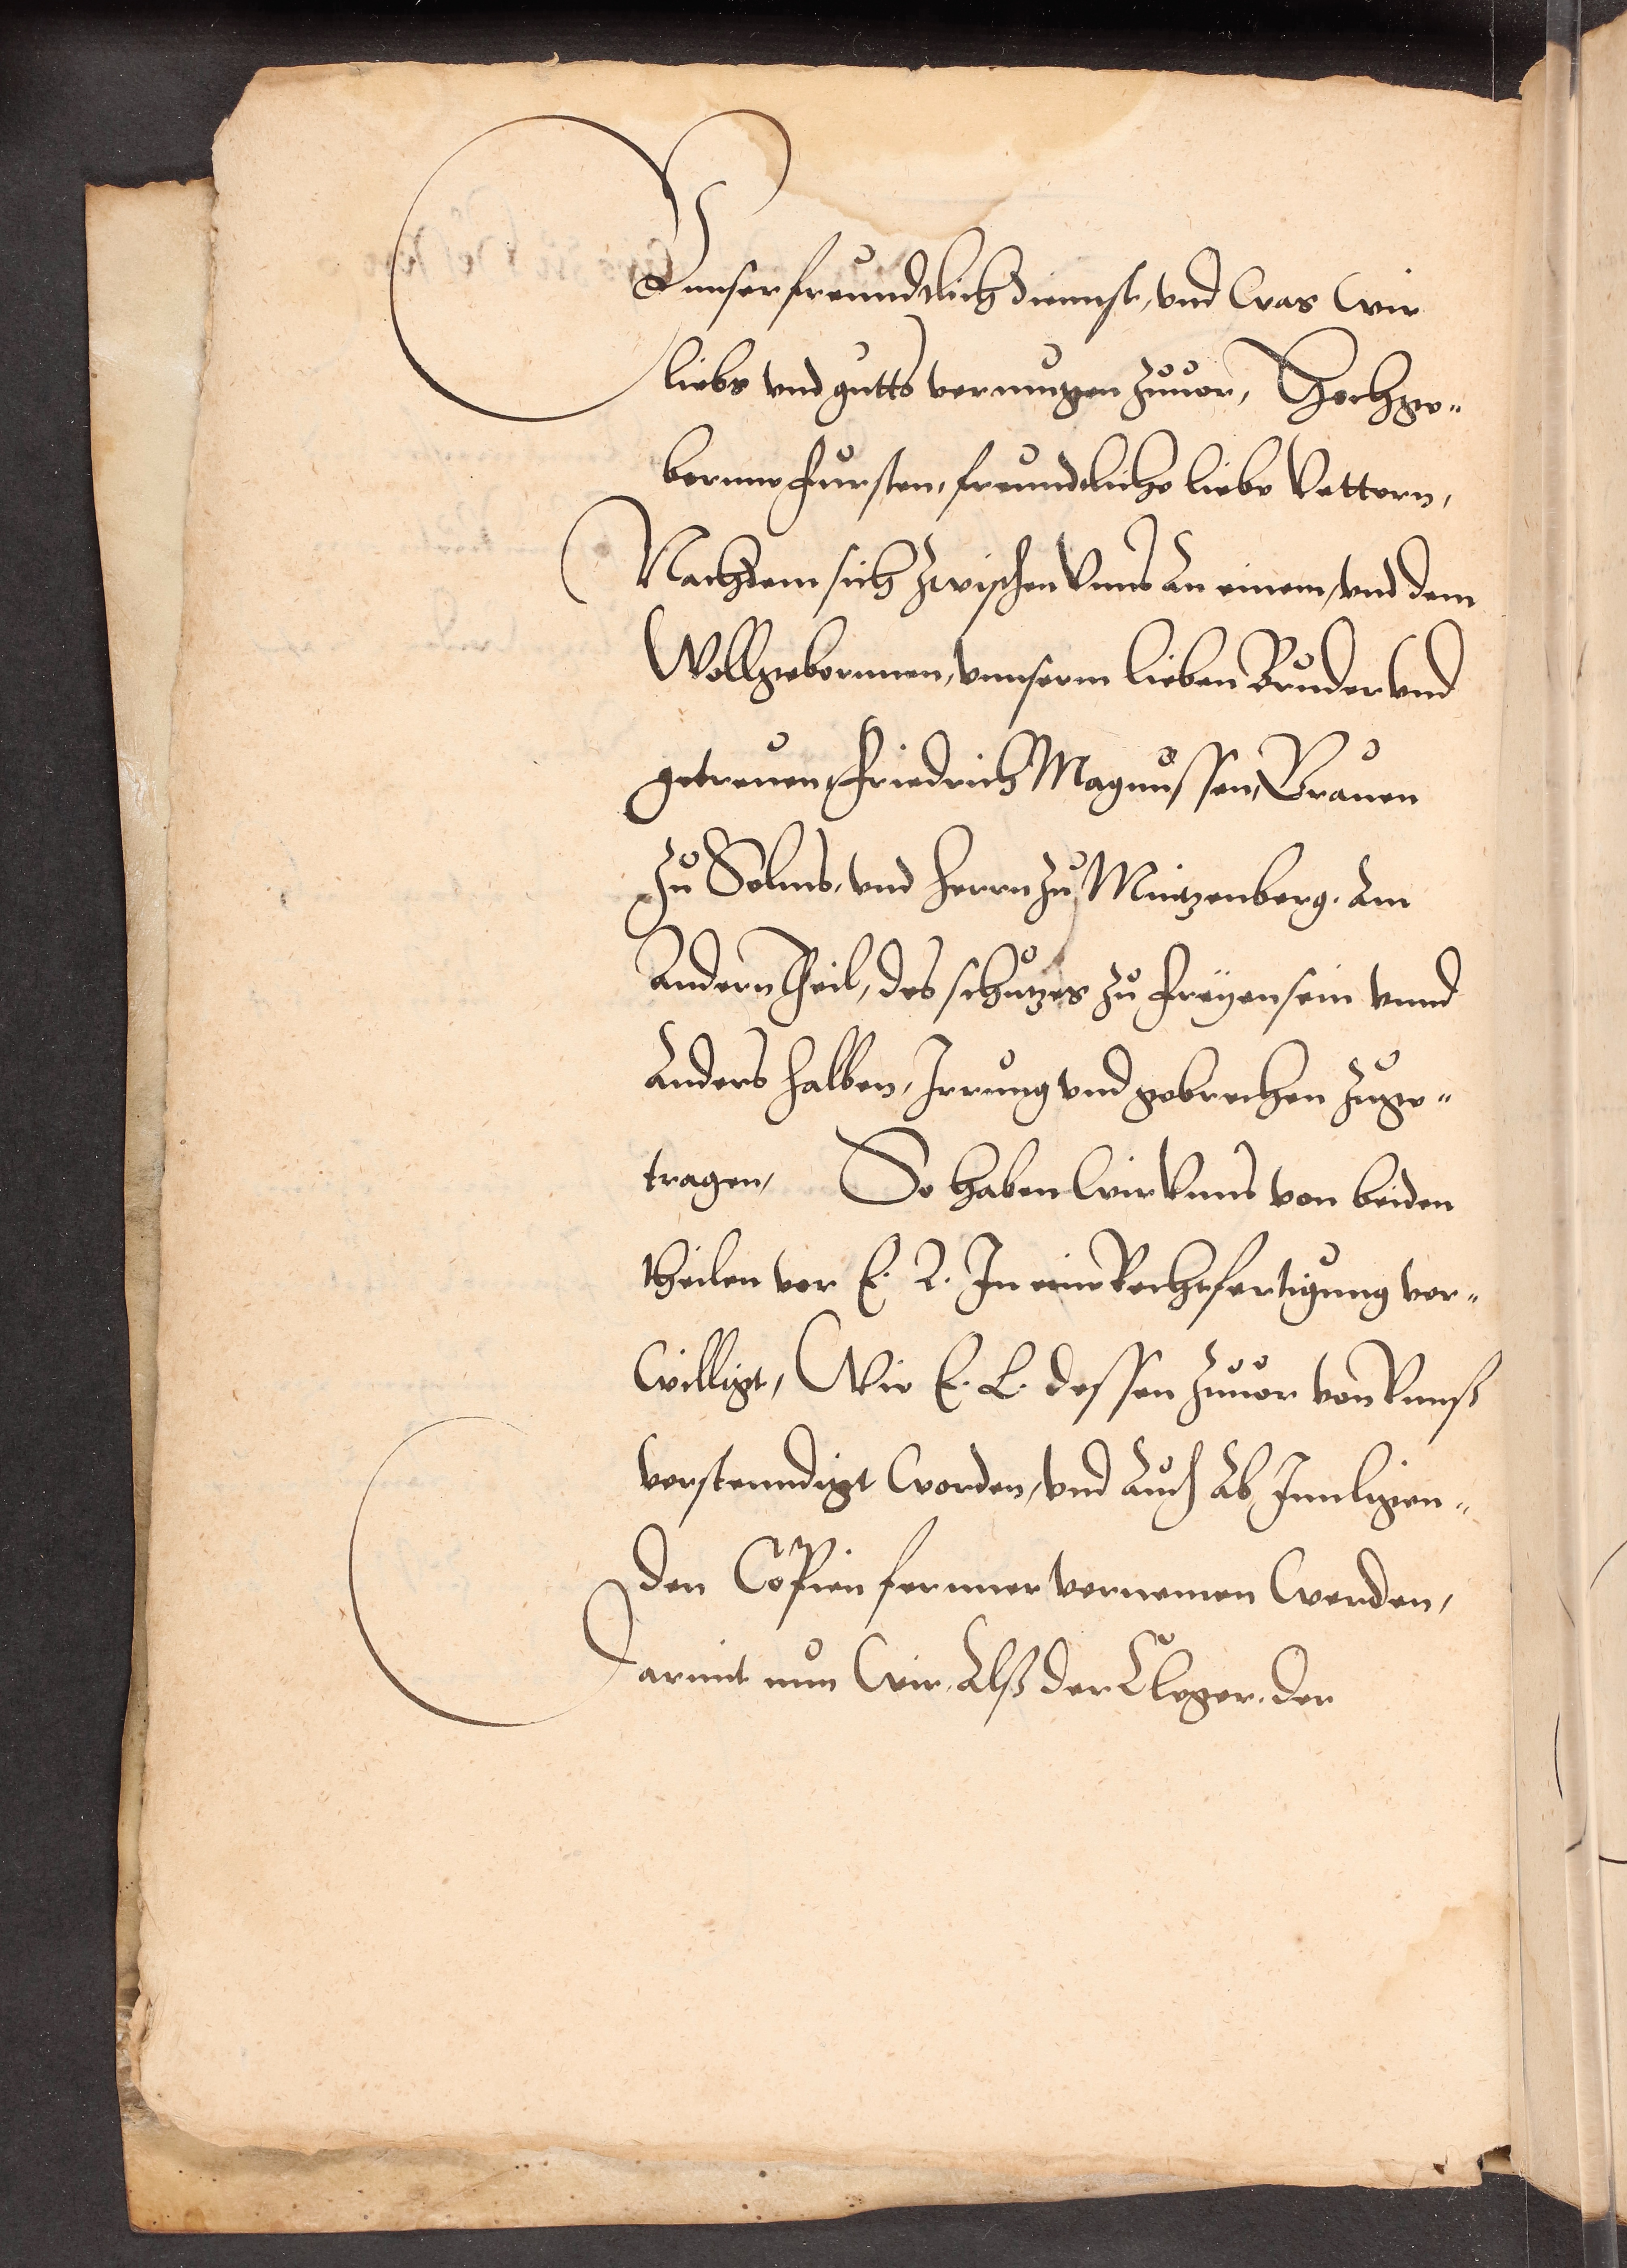 Vnnser freundtlich diennst, vnd was wir
liebs vnd gutts vermugen zuuor, Hochge„
borrne Fursten, freundtliche liebe Vettern,
Nachdem sich zwischen Vnns an einem, vnd dem
Wollgebornnen, vnnserm lieben Bruder vnd
getreuen, Friedrich Magnussen, Grauen
zu Solms, vnd herrn zu Mintzenberg. Am
andern Theil, des schutzes zu Freyensein vnnd
Anders halben, Irrung vnd gebrechen zuge„
tragen, So haben wir Vnns von beiden
theilen vor E. L. In eine Rechtfertigung ver„
willigt, Wie E. L. dessen zuuor von Vnnß
verstenndigt worden, vnd auch ab Innligen„
den Copien fernner vernemen werden,
Darmit nun wir, Alß der Cleger, der